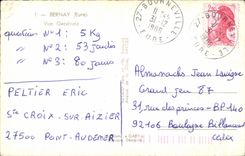 BERNAY (Eure)
Vue Générale
question N° 1 : 5 Kg
N° 2 : 53 jardins
N° 3 : 80 jours
PELTIER ERIC
Ste CROIX-SUR-AIZIER
27500 PONT-AUDEMER
27-BOURNEVILLE
EURE
Almanachs Jean Lavigne
Grand jeu 87
31 rue des princes - BP 140
92106 Boulogne Billancourt
Cedex